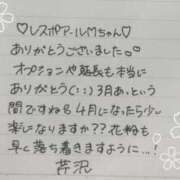 ♡レスポアールMちゃん♡
ありがとうございました。
オプションや延長も本当に
ありがとう(:;)3月あっという
間ですねら4月になったら少〜
楽になりますか??花粉も
早く落ち着きますように…!
芹沢